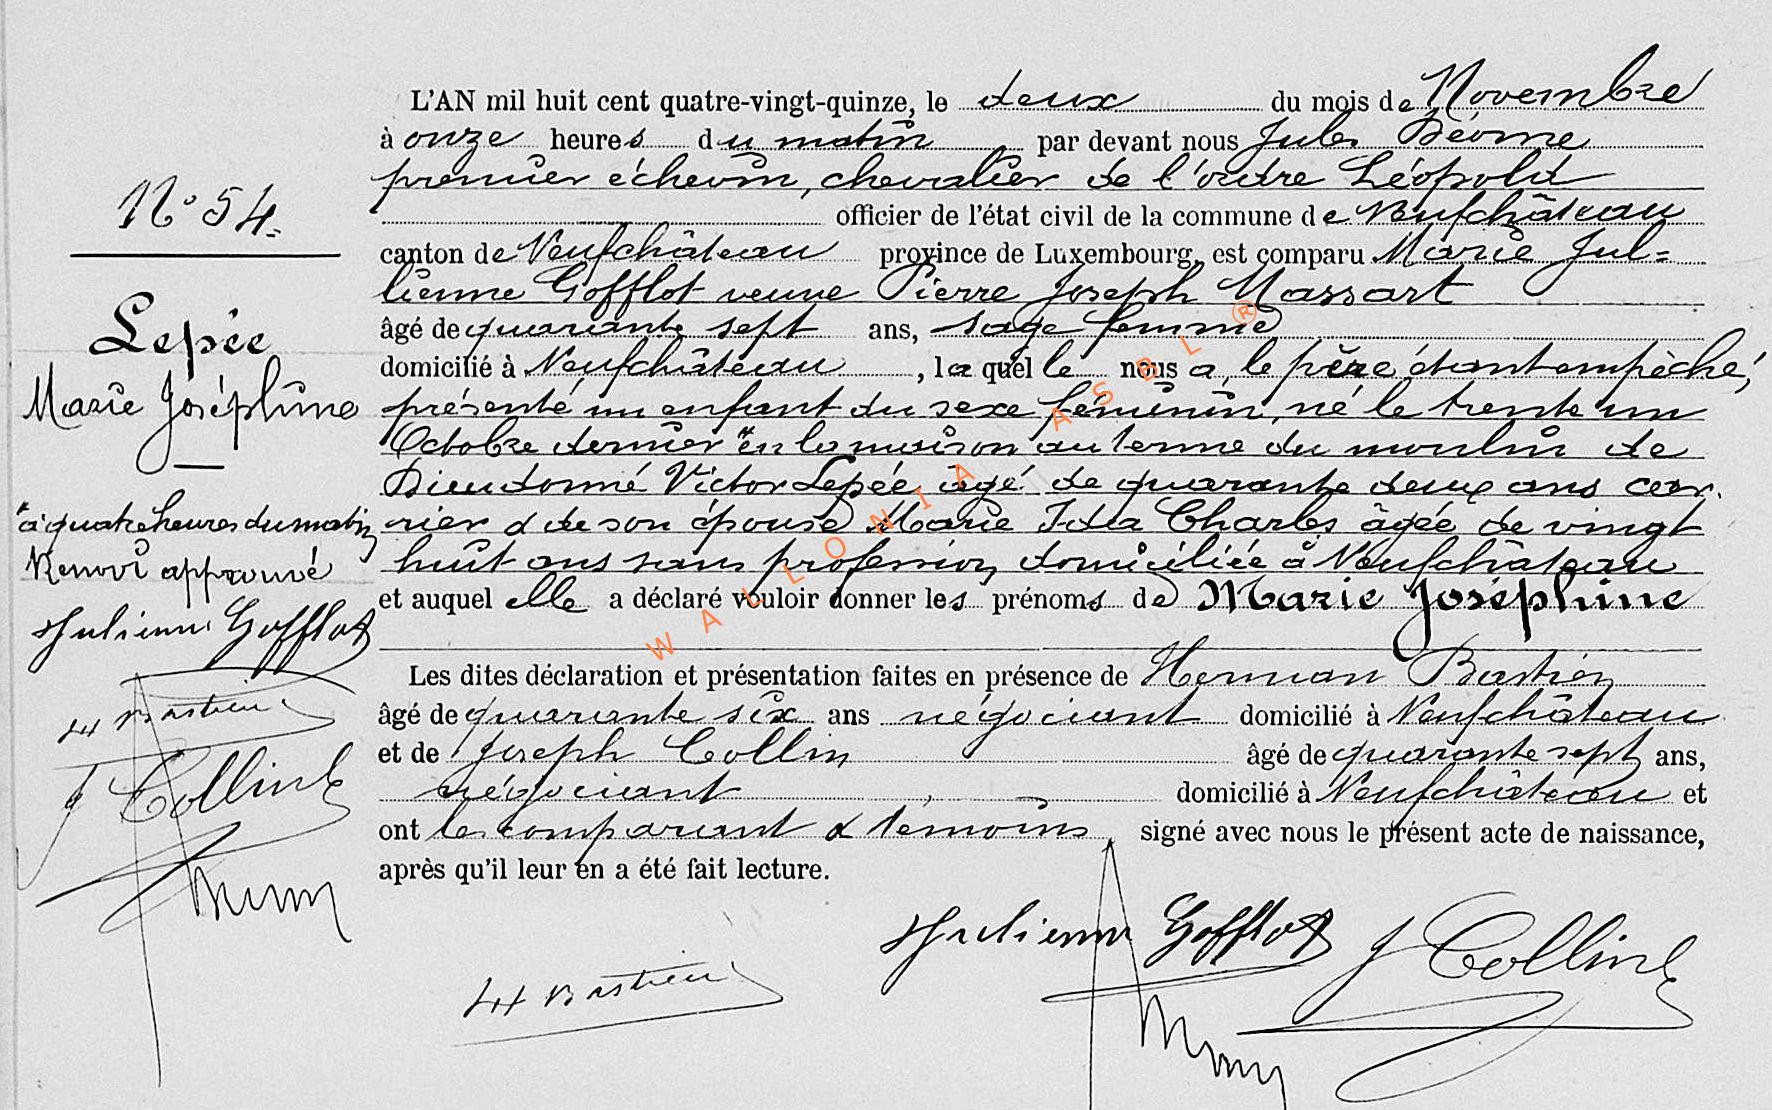 N° 54.
Lepée
Marie Joséphine
* à quatre heures du matin
Renvoi approuvé
Julienne Gofflot
H Bastien
J Collin
L'AN mil huit cent quatre-vingt-quinze, le deux du mois de Novembre
à onze heures du matin par devant nous Jules
premier échevin, chevalier de l'ordre Léopold
officier de l'état civil de la commune de Neufchâteau
canton de Neufchâteau province de Luxembourg, est comparu Marie Jul=
lienne Gofflot veuve Pierre Joseph Massart
âgé de quarante sept ans, sage femme
domicilié à Neufchâteau, laquelle nous a, le père étant empêché,
présenté un enfant du sexe féminin, né le trente un
Octobre dernier * en la maison du moulin de
Dieudonné Victor Lepée âgé de quarante deux ans car.
rier & de son épouse Marie Ida Charles âgée de vingt
huit ans sans profession domiciliée à Neufchâteau
et auquel elle a déclaré vouloir donner les prénoms de Marie Joséphine
Les dites déclaration et présentation faites en présence de Herman Bastien
âgé de quarante six ans négociant domicilié à Neufchâteau
et de Joseph Collin âgé de quarante sept ans,
négociant domicilié à Neufchâteau et
ont les comparant & témoins signé avec nous le présent acte de naissance,
après qu'il leur en a été fait lecture.
Julienne Gofflot J Collin
H Bastien
WALLONIA ASBL ®